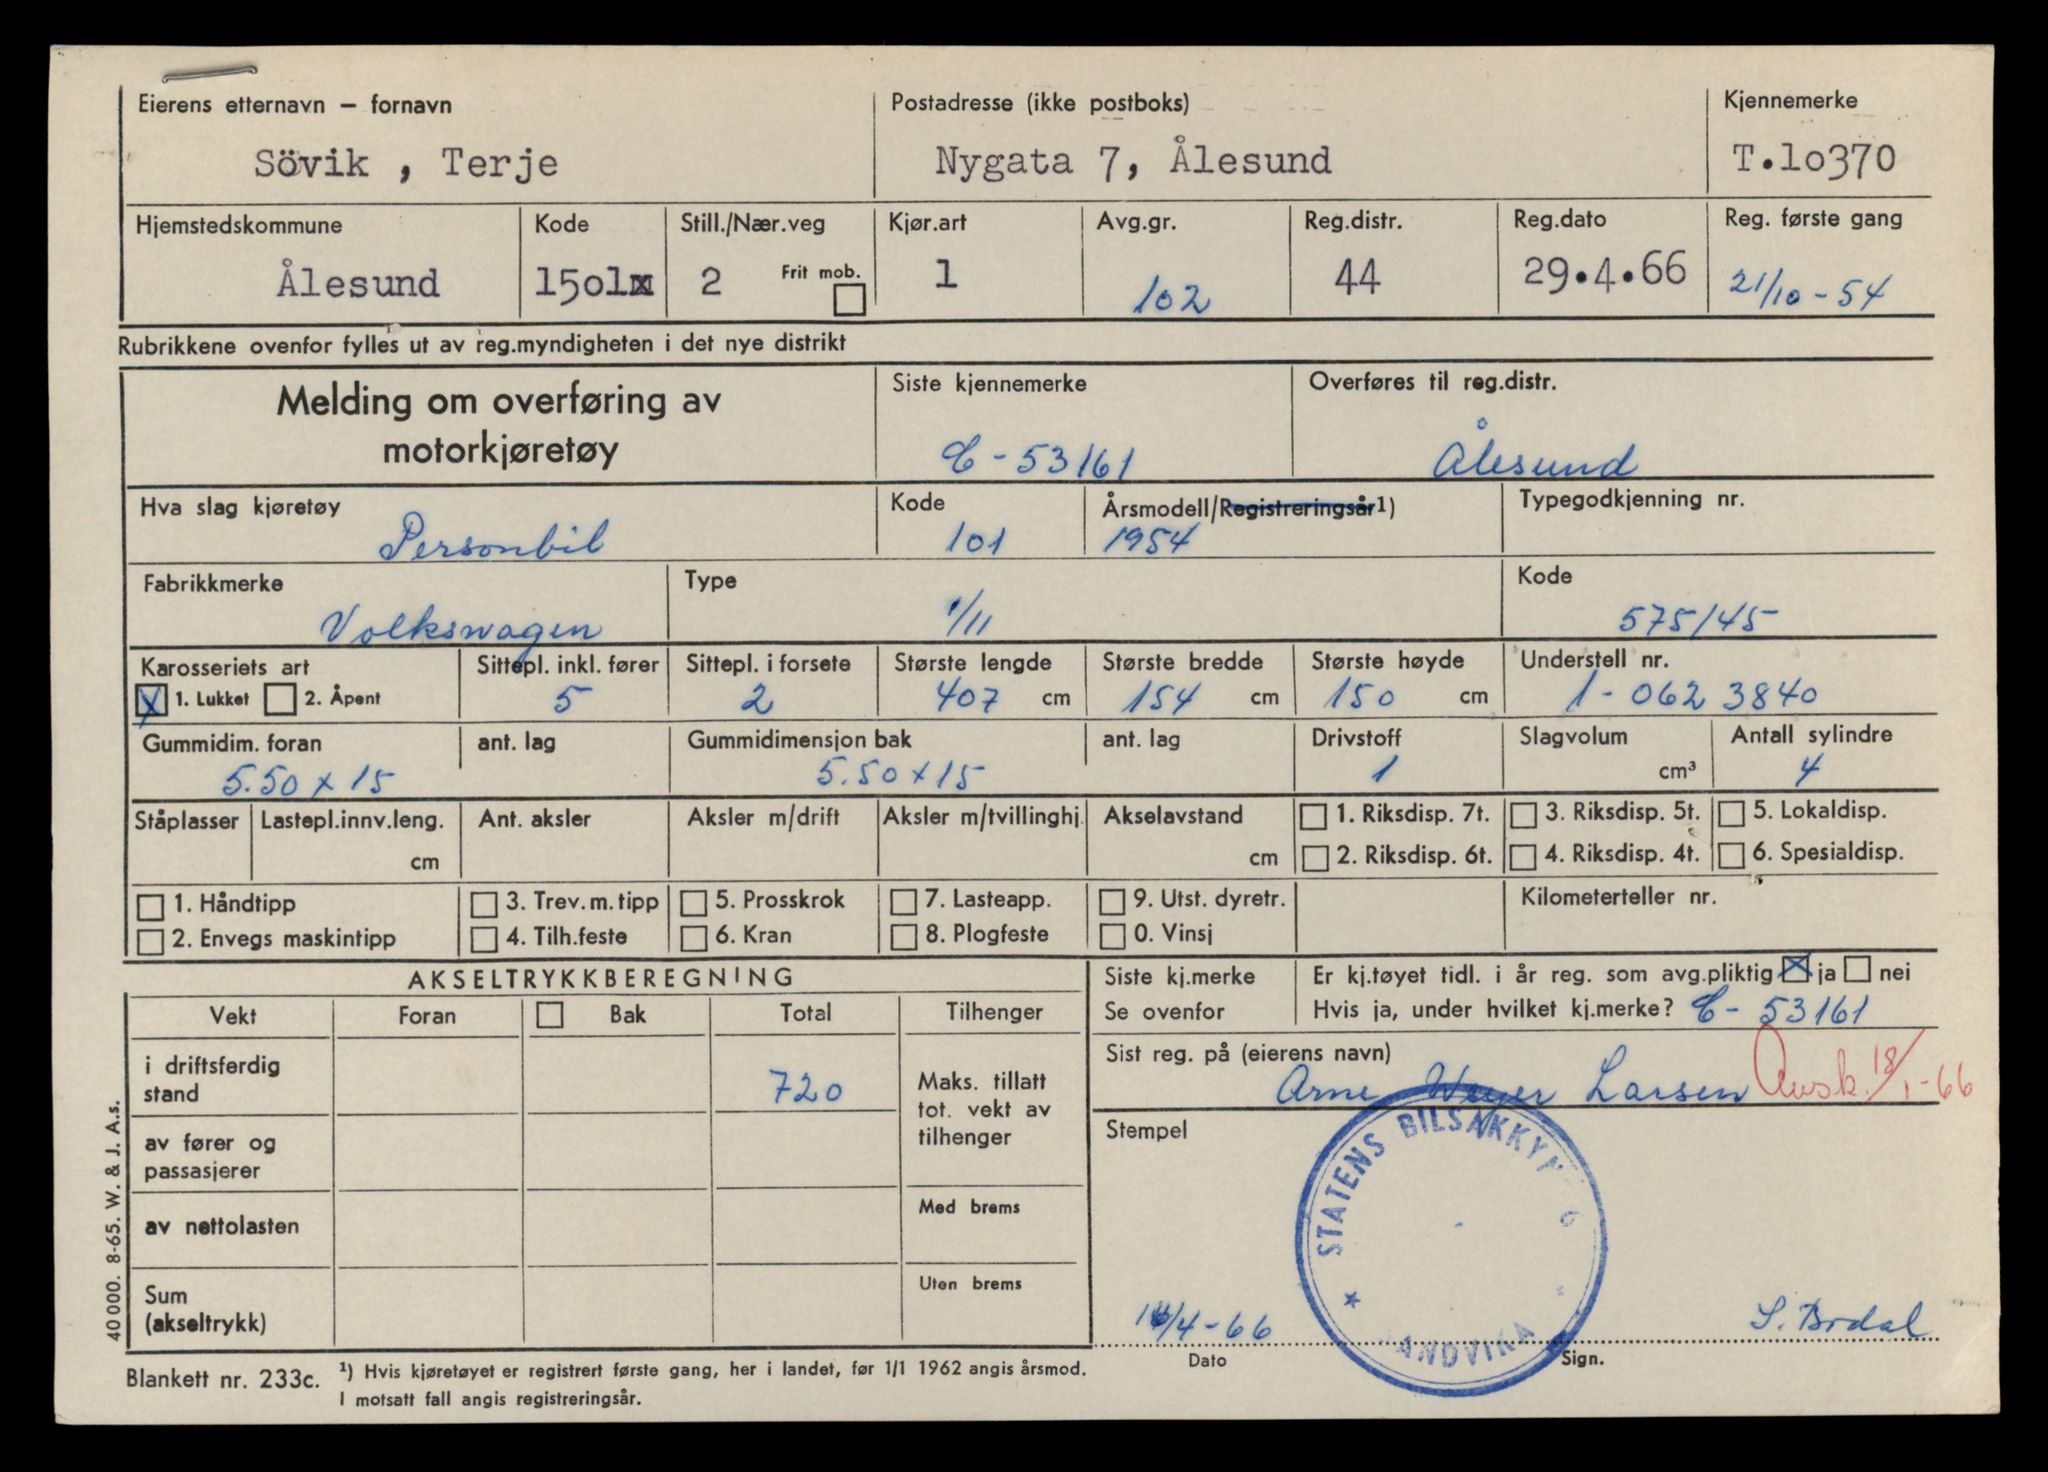 Eierens etternavn – fornavn Postadresse (ikke postboks) Kjennemerke
Sövik , Terje Nygata 7, Ålesund T.lo370
Hjemstedskommune Kode Still./Nær.veg Kjør.art Avg.gr. Reg.distr. Reg.dato Reg. første gang
Frit mob.
Ålesund 15o1x 2 1 102 44 29.4.66 21/10-54
Rubrikkene ovenfor fylles ut av reg.myndigheten i det nye distrikt
Melding om overføring av Siste kjennemerke Overføres til reg.distr.
motorkjøretøy C-53161 Ålesund
Hva slag kjøretøy Kode Årsmodell/Registreringsår1) Typegodkjenning nr.
Personbil 101 1954
Fabrikkmerke Type Kode
Volkswagen 1/11 575/45
Karosseriets art Sittepl. inkl. fører Sittepl. i forsete Største lengde Største bredde Største høyde Understell nr.
X 1. Lukket 2. Åpent 5 2 407 cm 154 cm 150 cm 1-062 3840
Gummidim. foran ant. lag Gummidimensjon bak ant. lag Drivstoff Slagvolum Antall sylindre
5.50 x 15 5.50 x 15 1 cm³ 4
Ståplasser Lastepl.innv.leng. Ant. aksler Aksler m/drift Aksler m/tvillinghj. Akselavstand 1. Riksdisp. 7t. 3. Riksdisp. 5t. 5. Lokaldisp.
cm cm 2. Riksdisp. 6t. 4. Riksdisp. 4t. 6. Spesialdisp.
1. Håndtipp 3. Trev. m. tipp 5. Prosskrok 7. Lasteapp. 9. Utst. dyretr. Kilometerteller nr.
2. Envegs maskintipp 4. Tilh.feste 6. Kran 8. Plogfeste 0. Vinsj
AKSELTRYKKBEREGNING Siste kj.merke Er kj.tøyet tidl. i år reg. som avg.pliktig X ja nei
Vekt Foran Bak Total Tilhenger Se ovenfor Hvis ja, under hvilket kj.merke? C-53161
i driftsferdig stand 720 Maks. tillatt tot. vekt av tilhenger
Sist reg. på (eierens navn)
Arne Larsen Avsk. 18/1-66
av fører og passasjerer Stempel
STATENS BILSAKKYN
av nettolasten Med brems
Sum (akseltrykk) Uten brems
ANDVIKA
/4-66 S. Brdal
Dato Sign.
40 000. 8-65. W. & J. A.s.
Blankett nr. 233c. 1) Hvis kjøretøyet er registrert første gang, her i landet, før 1/1 1962 angis årsmod.
I motsatt fall angis registreringsår.